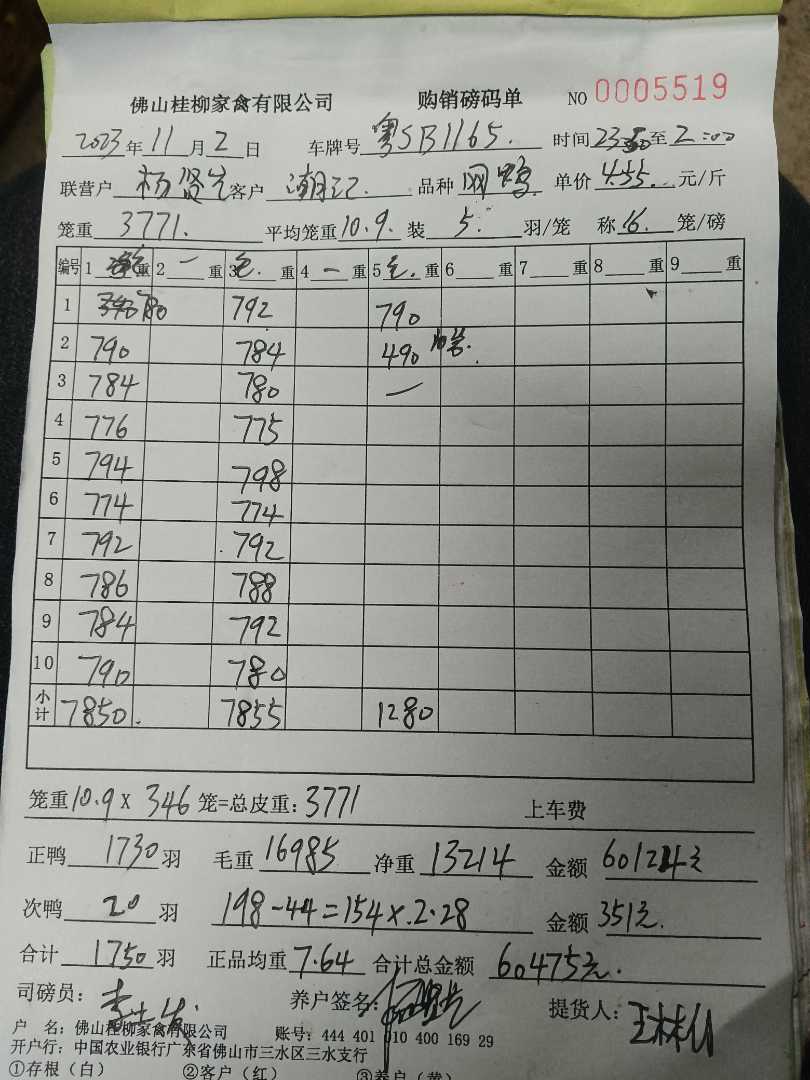 佛山桂柳家禽有限公司 购销磅码单 NO 0005519
2023年11月2日 车牌号 粤SB1165. 时间 至2:00
联营户 杨贤 客户 潮记. 品种 单价 4.55. 元/斤
笼重 3771. 平均笼重10.9. 装 5. 羽/笼 称16.笼/磅
编号 1 重 2 一 重 3 毛. 重 4 一 重 5 毛. 重 6 重 7 重 8 重 9 重
1 780 792 790
2 790 784 490 10笼.
3 784 780 —
4 776 775
5 794 798
6 774 774
7 792 792
8 786 788
9 784 792
10 790 780
小计 7850. 7855 1280
笼重10.9X 346笼=总皮重:3771 上车费
正鸭 1730羽 毛重 16985 净重 13214 金额 60124元
次鸭 20羽 198-44=154×2.28 金额 351元.
合计 1750羽 正品均重 7.64 合计总金额 60475元.
司磅员: 李 养户签名: 提货人: 王林
户 名: 佛山桂柳家禽有限公司 账号: 444 401 010 400 169 29
开户行: 中国农业银行广东省佛山市三水区三水支行
①存根(白) ②客户(红) ③养户(黄)